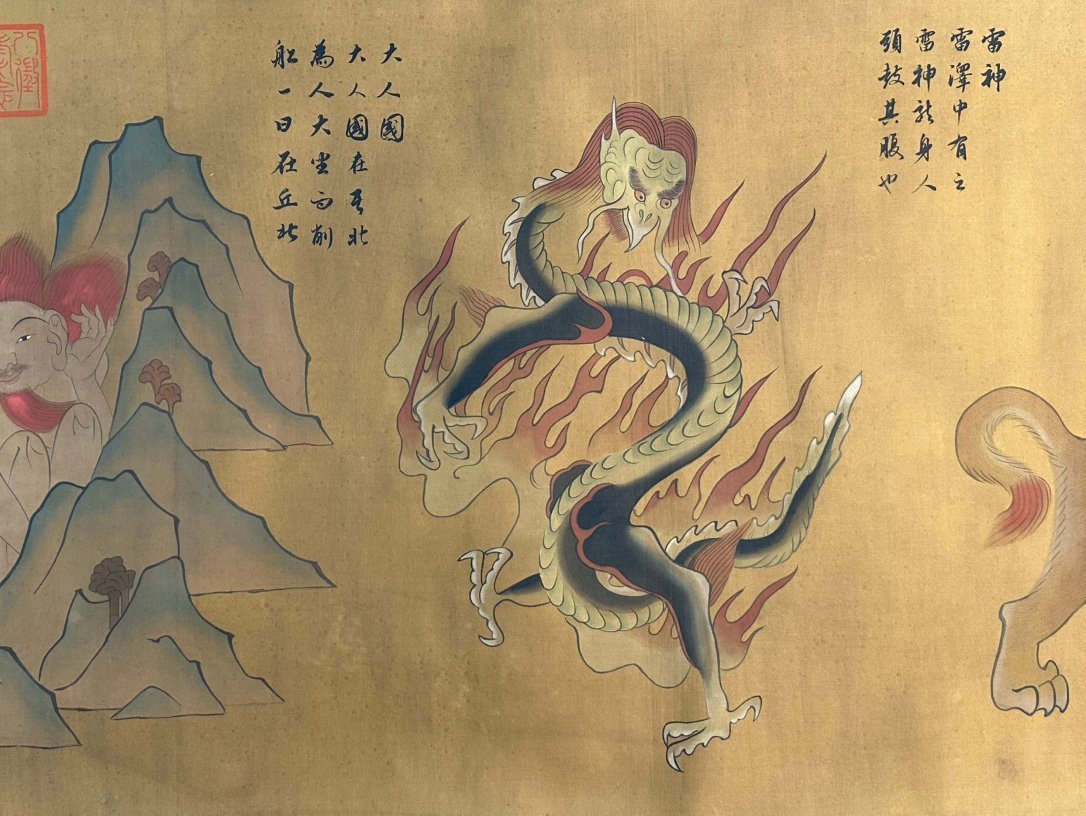 雷神
雷澤中有之
雷神龍身人
頭鼓其腹也
大人國
大人國在其北
為人大坐而削
船一日在丘北